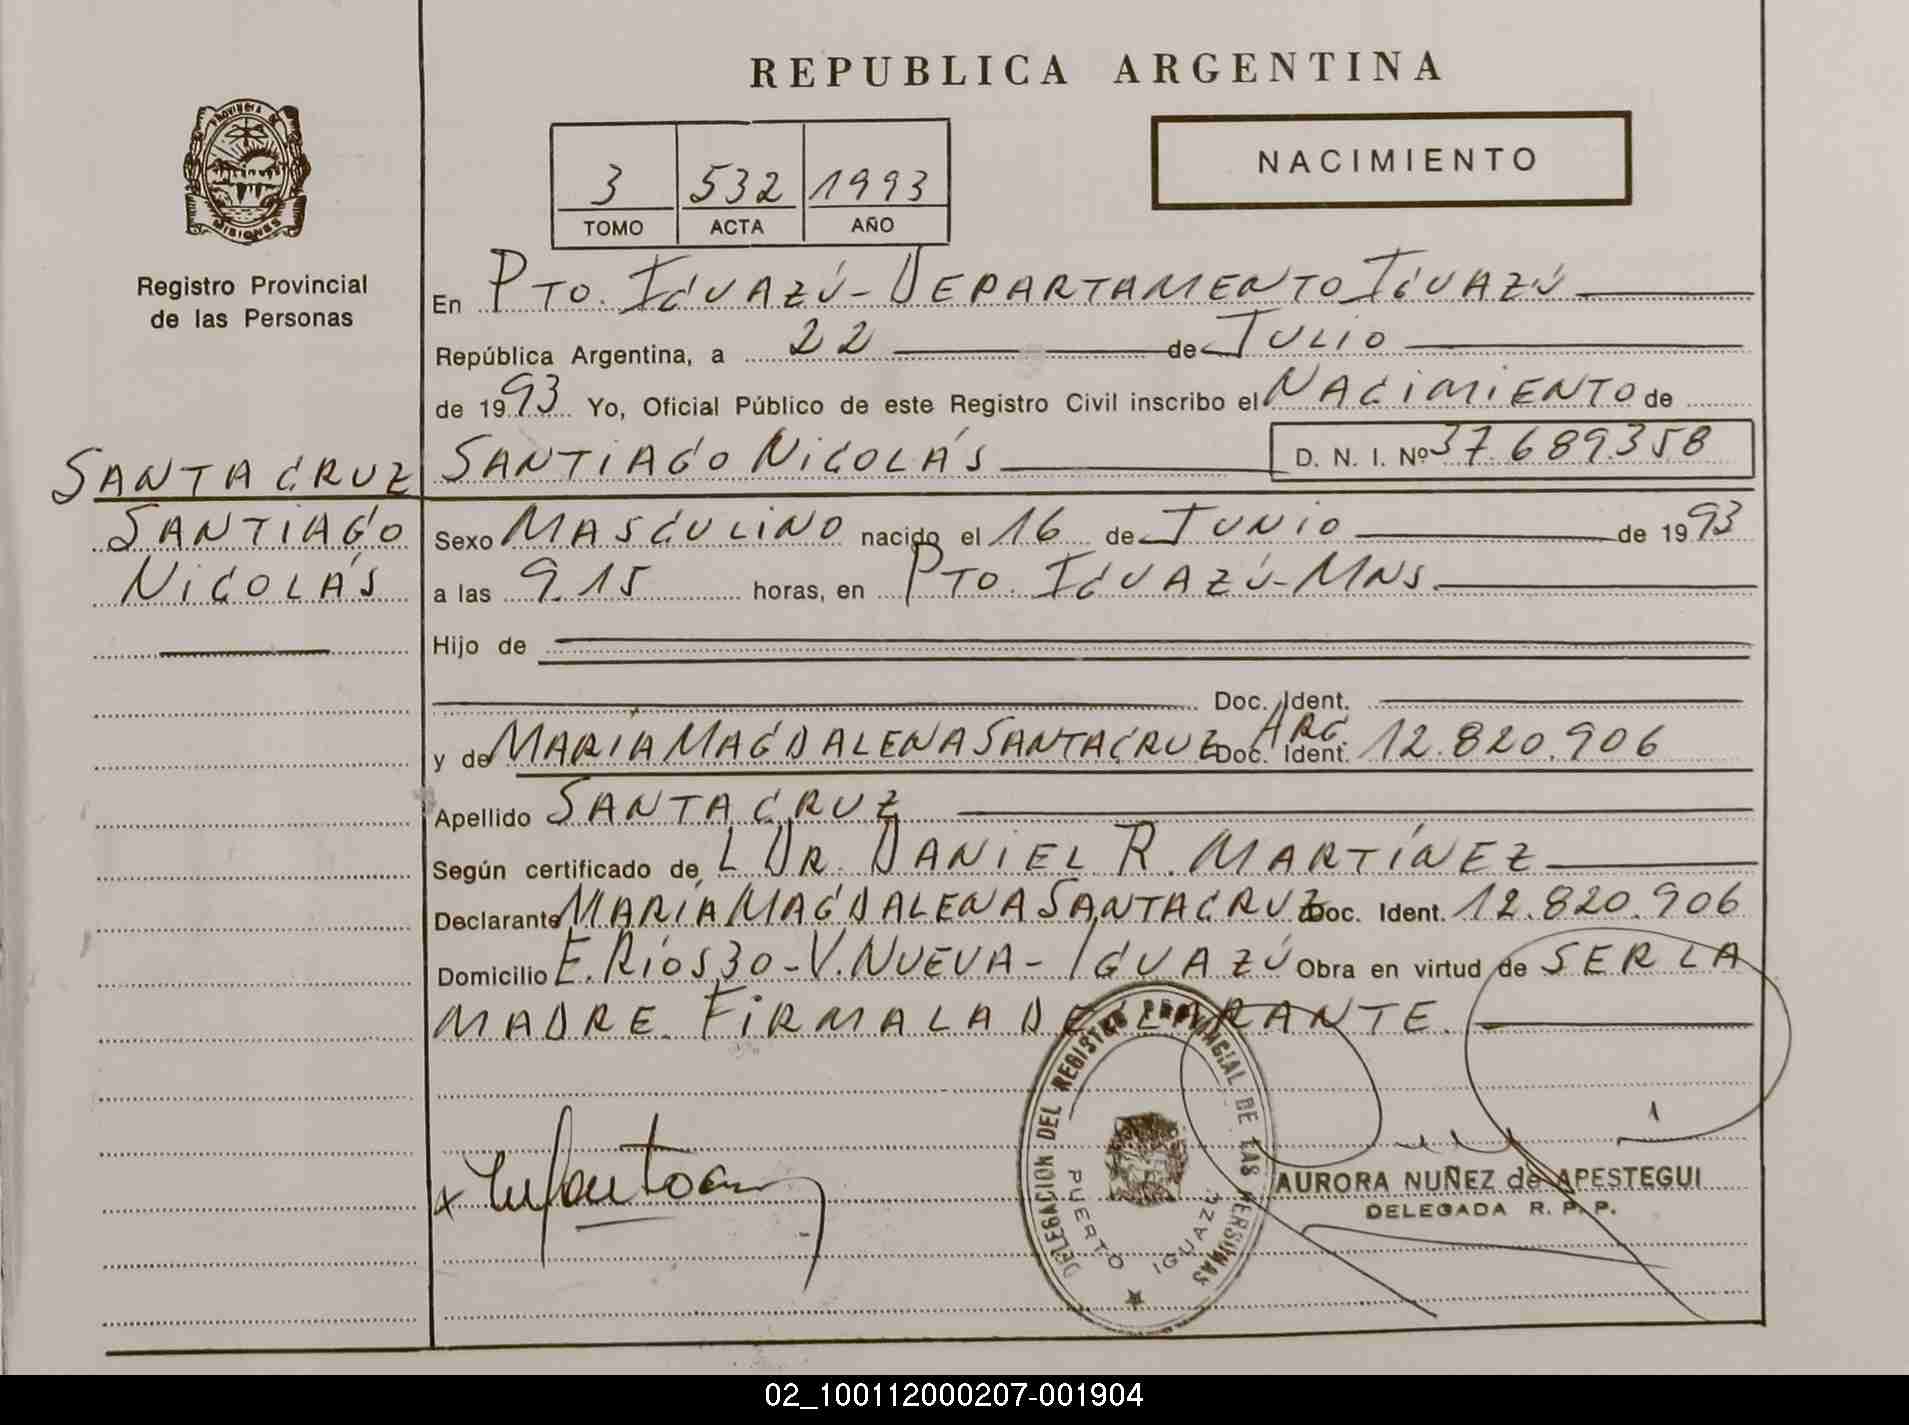 REPUBLICA ARGENTINA
PROVINCIA DE
MISIONES
NACIMIENTO
3 532 1993
TOMO ACTA AÑO
Registro Provincial
de las Personas
En PTO. IGUAZÚ - DEPARTAMENTO IGUAZÚ
República Argentina, a 22 de JULIO
de 1993 Yo, Oficial Público de este Registro Civil inscribo el NACIMIENTO de
SANTIAGO NICOLÁS D. N. I. Nº 37.689.358
SANTACRUZ
SANTIAGO
NICOLÁS
Sexo MASCULINO nacido el 16 de JUNIO de 1993
a las 9.15 horas, en PTO. IGUAZÚ - MNS.
Hijo de
Doc. Ident.
y de MARÍA MAGDALENA SANTACRUZ Doc. Ident. ARG. 12.820.906
Apellido SANTACRUZ
Según certificado de L DR. DANIEL R. MARTÍNEZ
Declarante MARÍA MAGDALENA SANTACRUZ Doc. Ident. 12.820.906
Domicilio E. RÍOS 30 - V. NUEVA - IGUAZÚ Obra en virtud de SER LA
MADRE. FIRMA LA DECLARANTE.
DELEGACION DEL REGISTRO PROVINCIAL DE LAS PERSONAS
PUERTO IGUAZU
AURORA NUÑEZ de APESTEGUI
DELEGADA R. P. P.
02_100112000207-001904